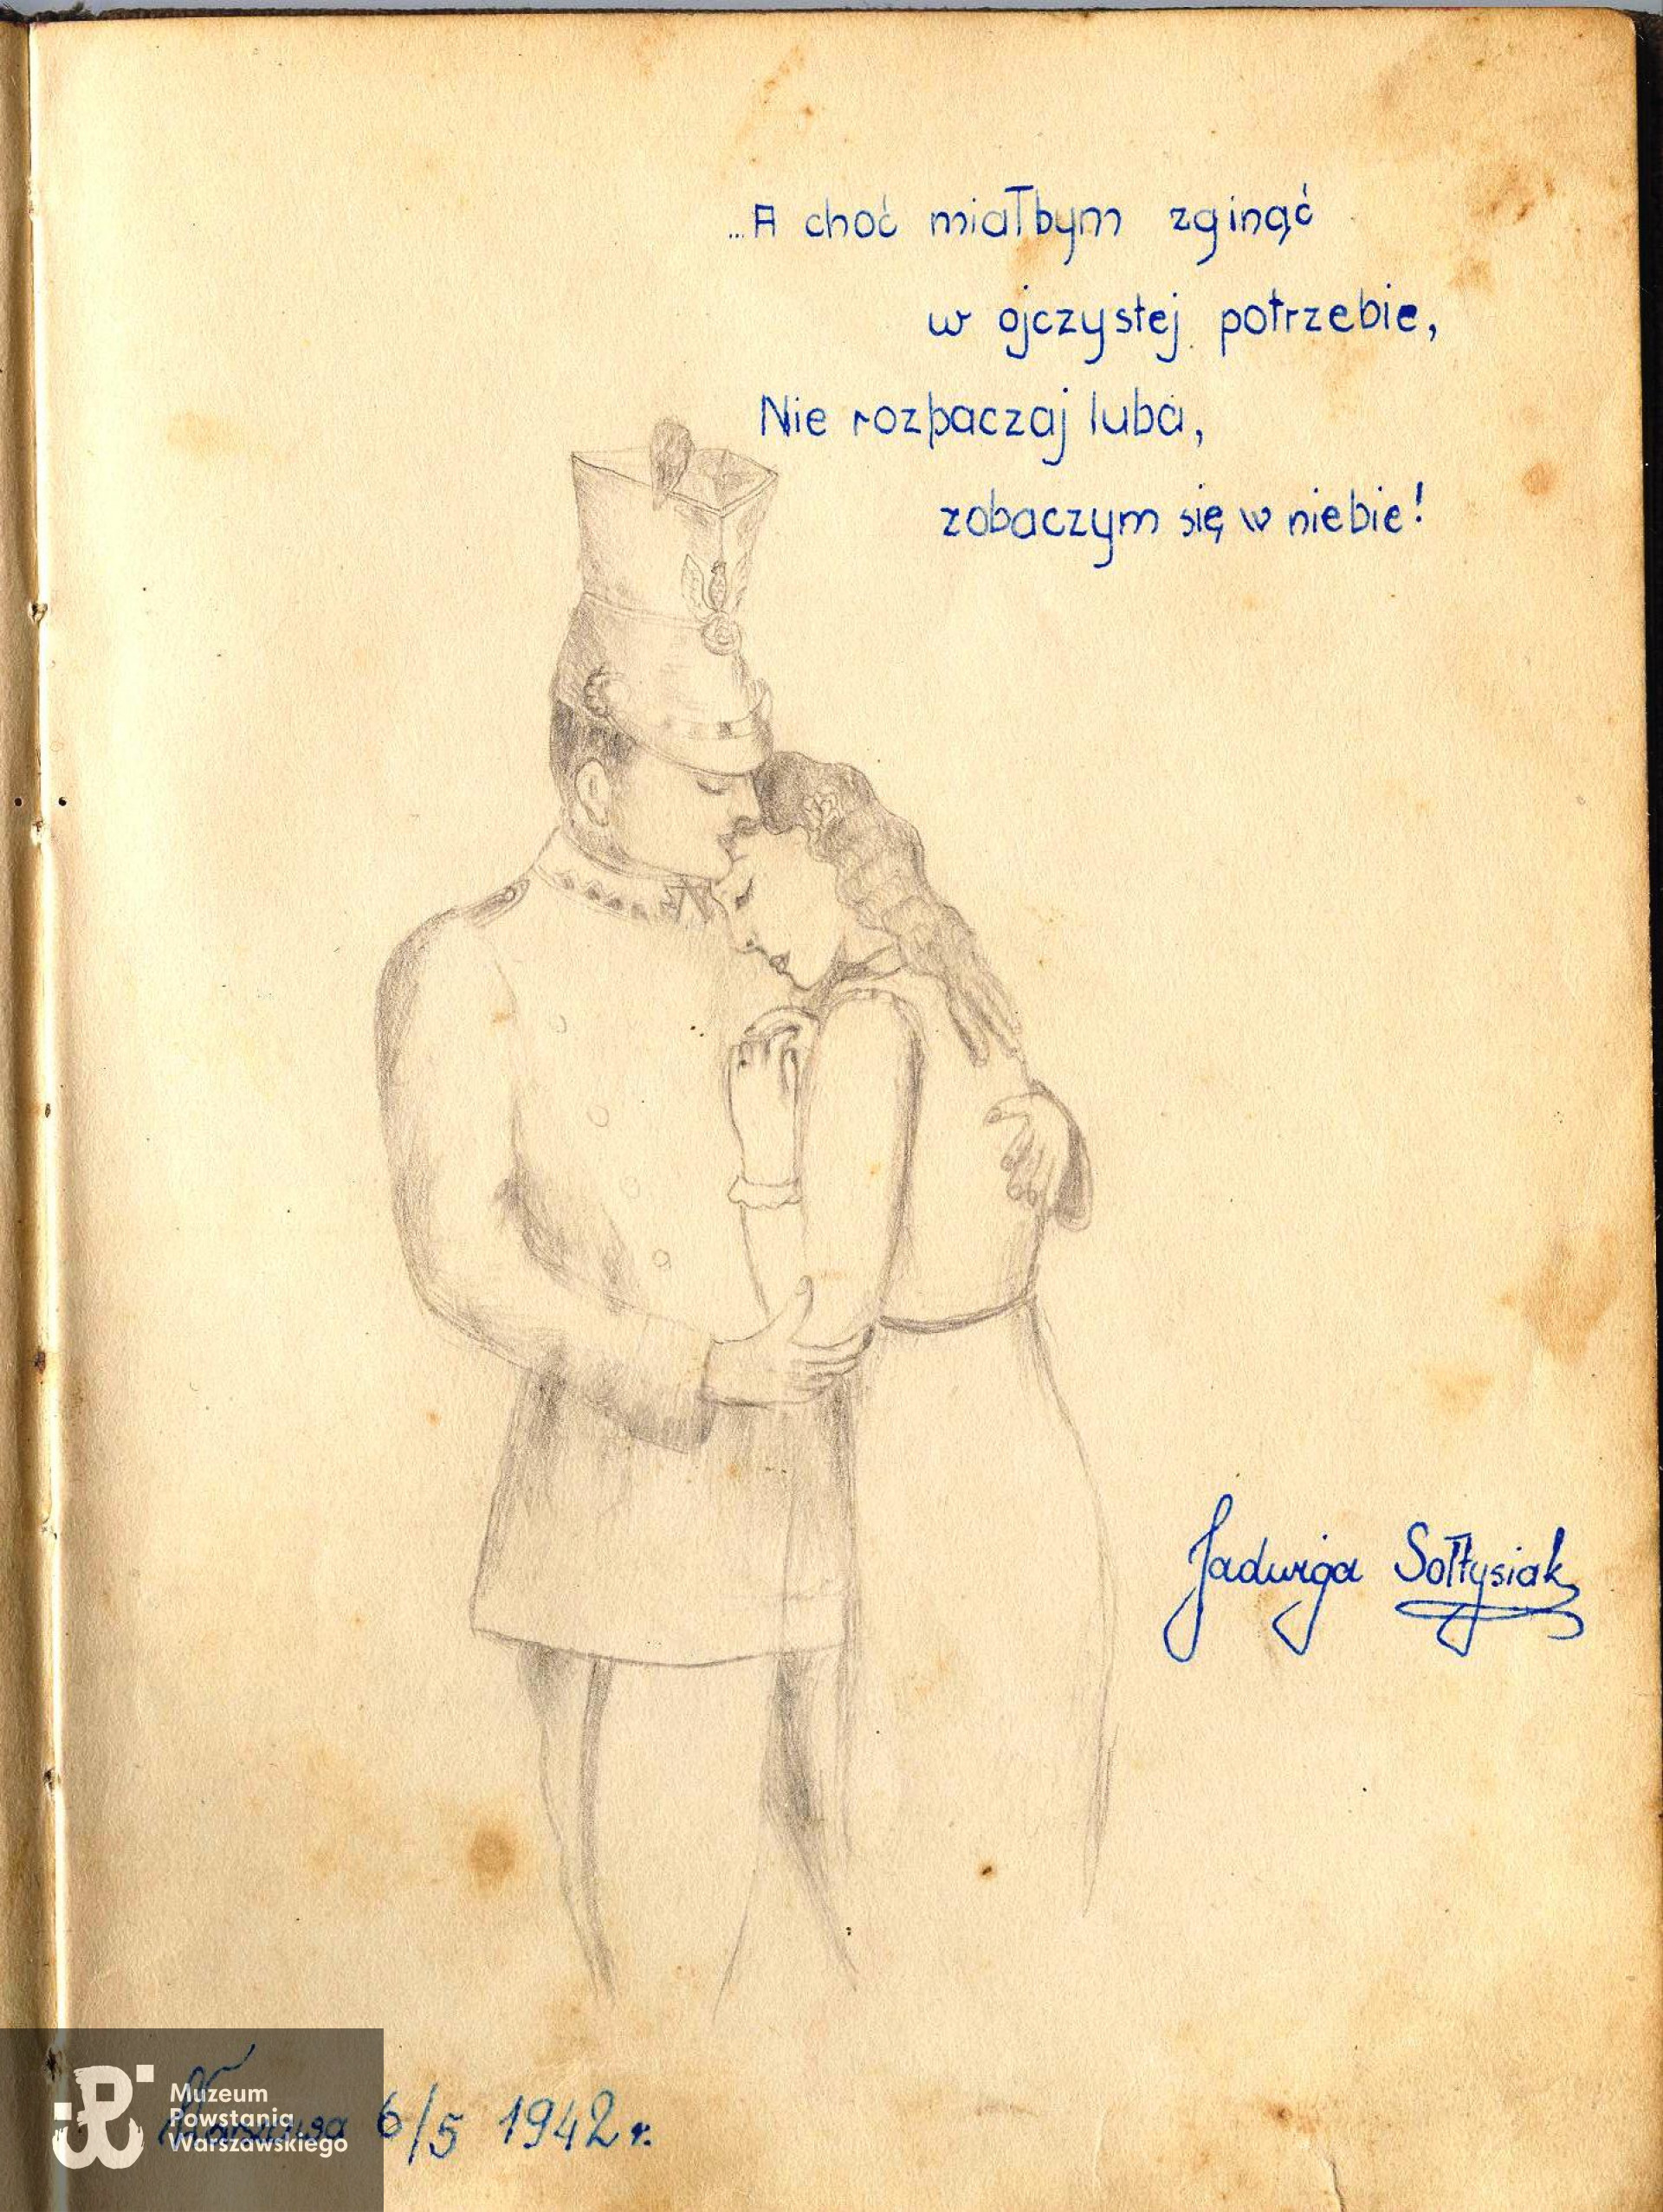 ...A choć miałbym zginąć
w ojczystej potrzebie,
Nie rozpaczaj luba,
zobaczym się w niebie!
Jadwiga Sołtysiak
Warszawa 6/5 1942 r.
Muzeum
Powstania
Warszawskiego